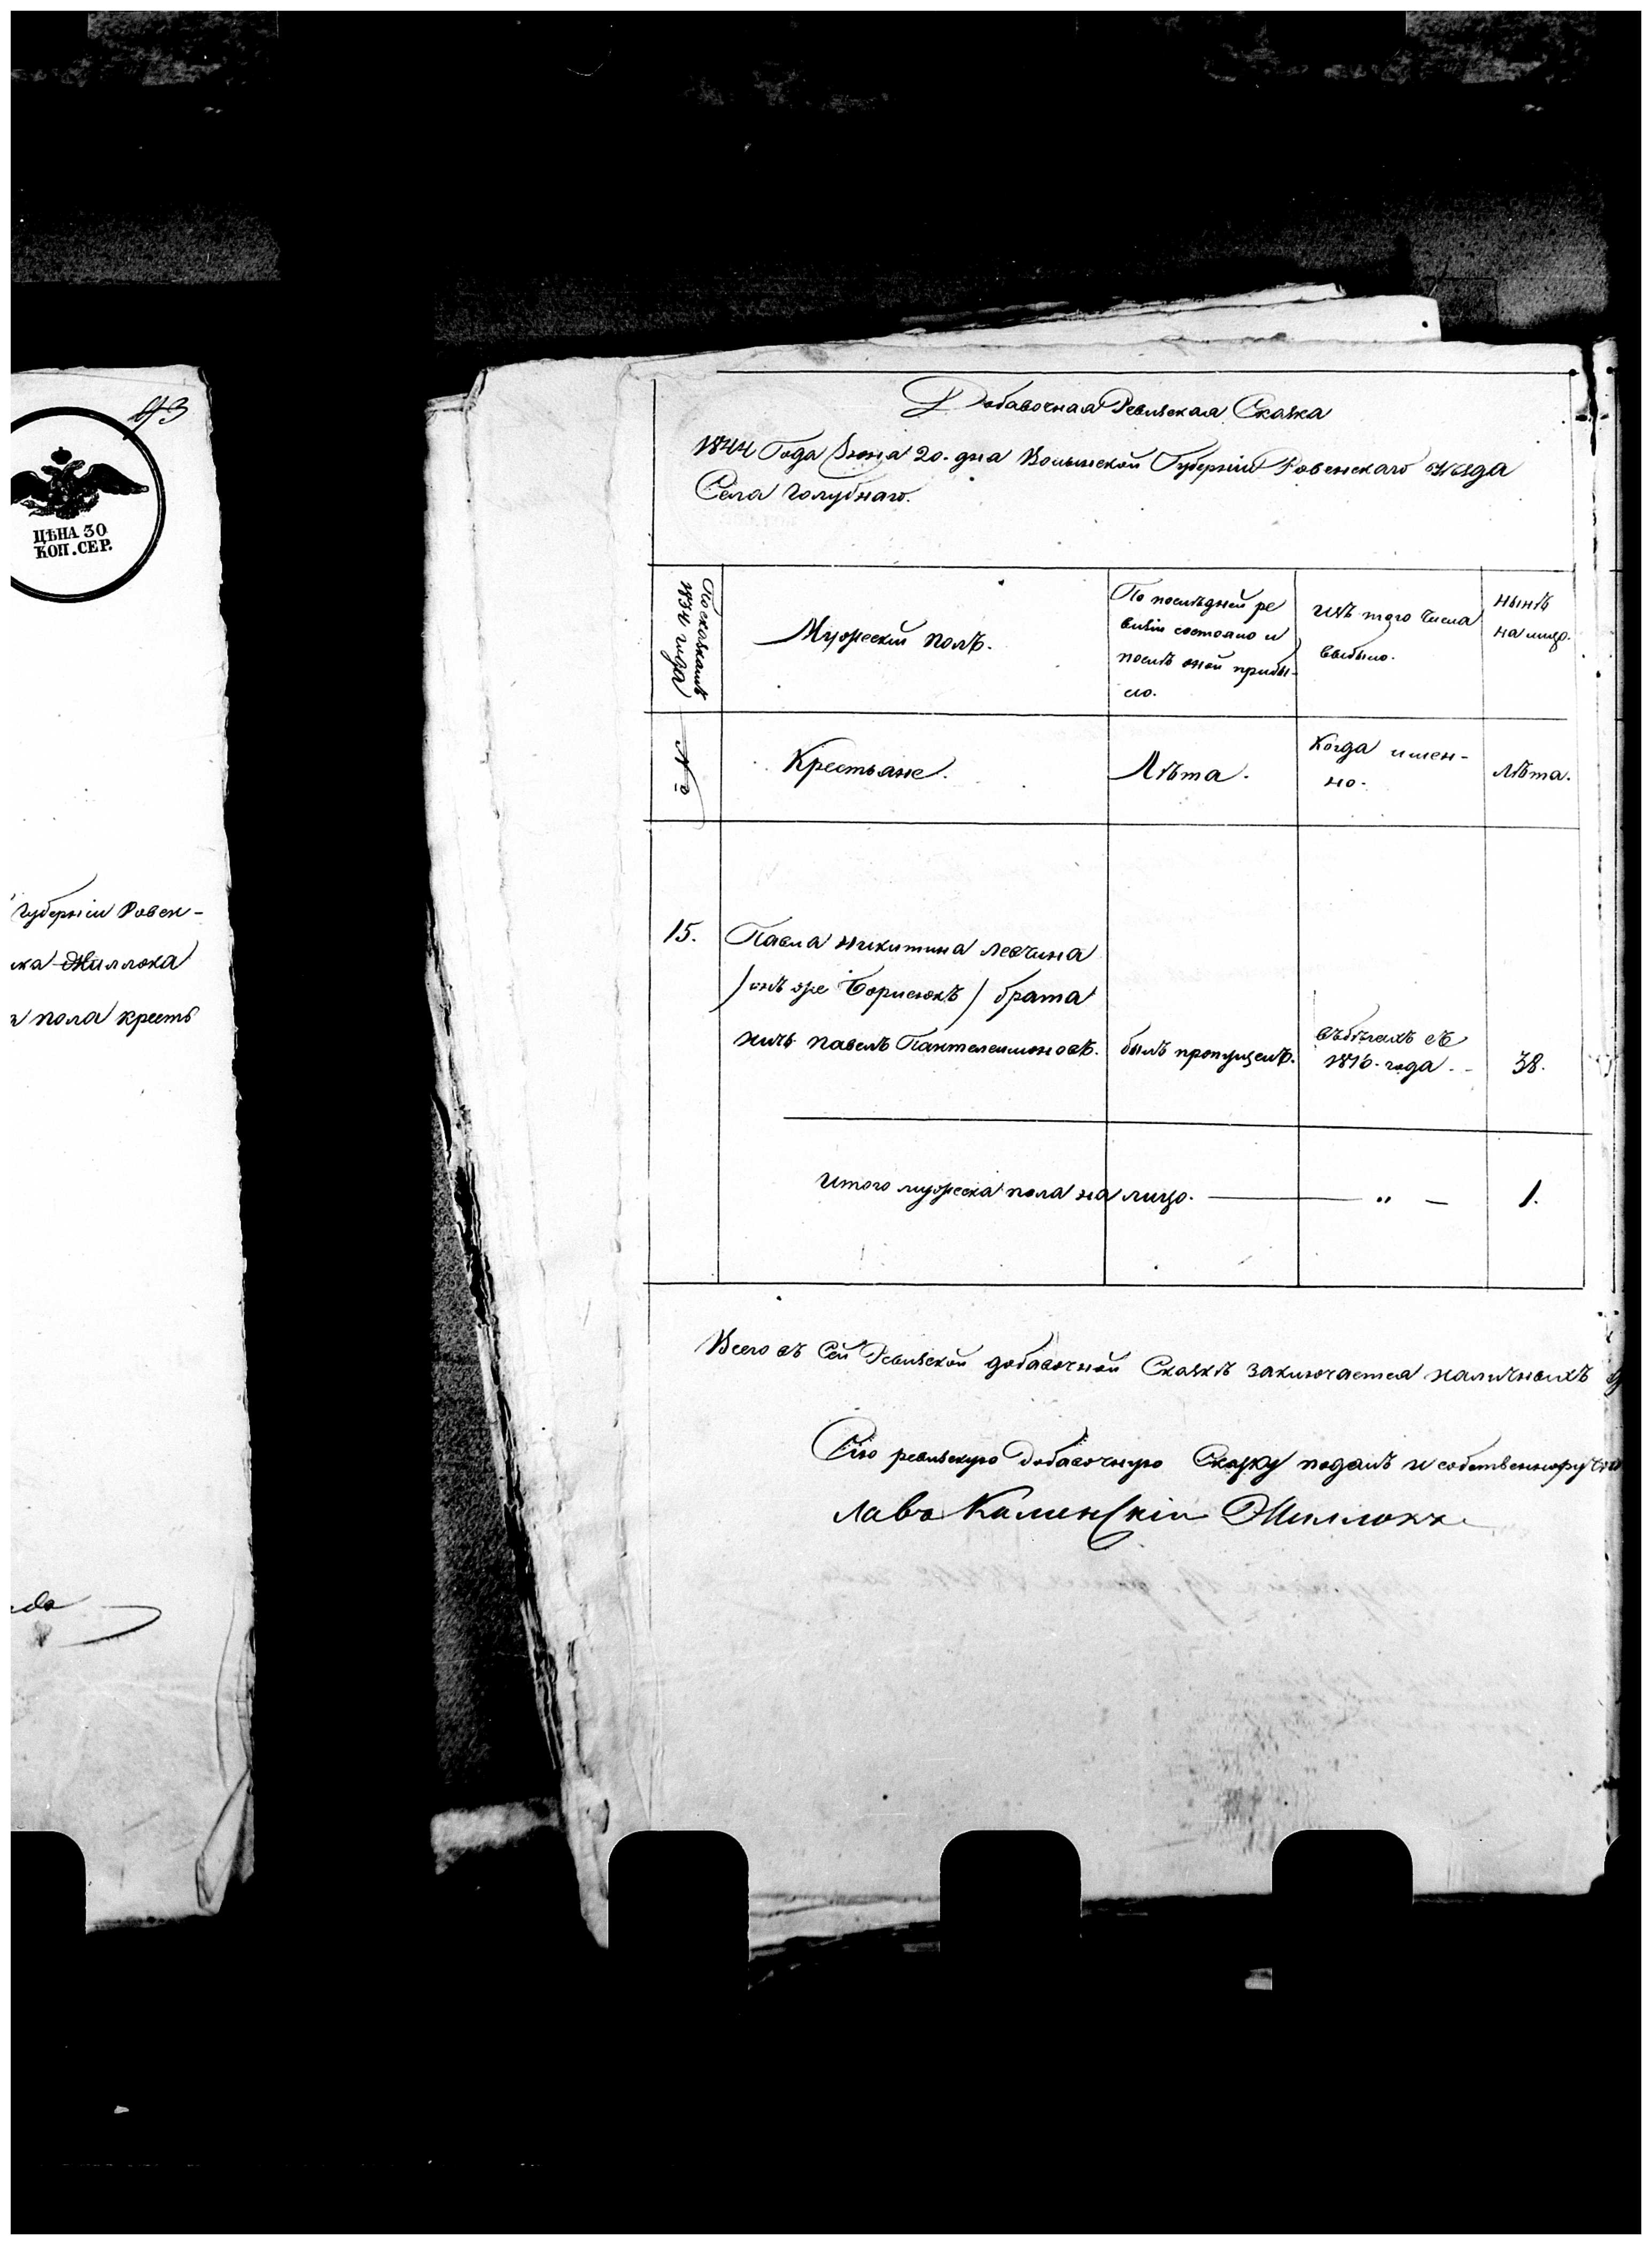 43
ЦѢНА 30
КОП. СЕР.
Губерніи Ровен-
ка Жиллока
пола кресть
Добавочная Ревизская Сказка
1844 Года Іюня 20. дня Волынской Губерніи Ровенскаго уѣзда
Села Голубнаго.
По сказкамъ
1834 года
Мужескій полъ.
По послѣдней ре
визіи состояло и
послѣ оной прибы-
ло.
Изъ того числа
выбыло.
нынѣ
на лицо.
№
Крестьяне.
Лѣта.
Когда имен-
но.
Лѣта.
15.
Павла Никитина Левчина
/онъ же Борисюкъ/ брата
ничь Павелъ Пантелеимоновъ.
былъ пропущенъ.
въ бѣгахъ съ
1816. года
38.
Итого мужеска пола на лицо. — „ —
1.
Всего въ Сей Ревизской добавочной Сказкѣ заключается наличныхъ
Сію ревизскую Добавочную Сказку подалъ и собственноручно
лавъ Калинскій Жиллокъ